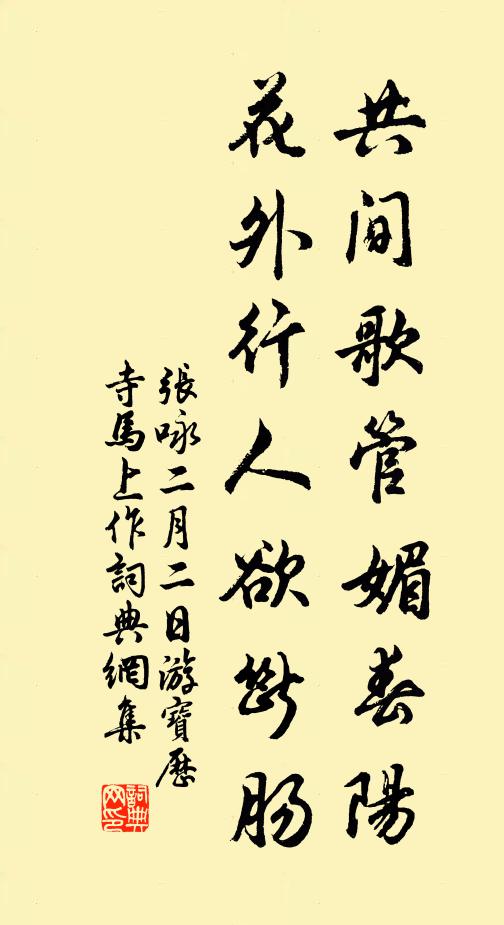 共间歌管媚春陽
花外行人欲断腸
張咏二月二日游寶歷
寺馬上作詞典網集
詞典
网印